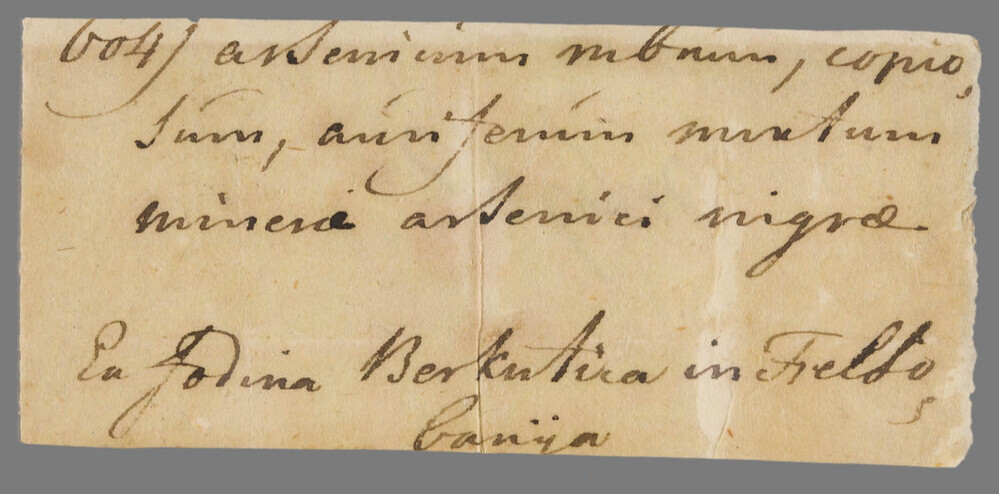 604) arsenicum rubrum, copio,
sum, auriferum mixtum
mineræ arsenici nigræ
Ex fodina Berkutira in Felso,
banya